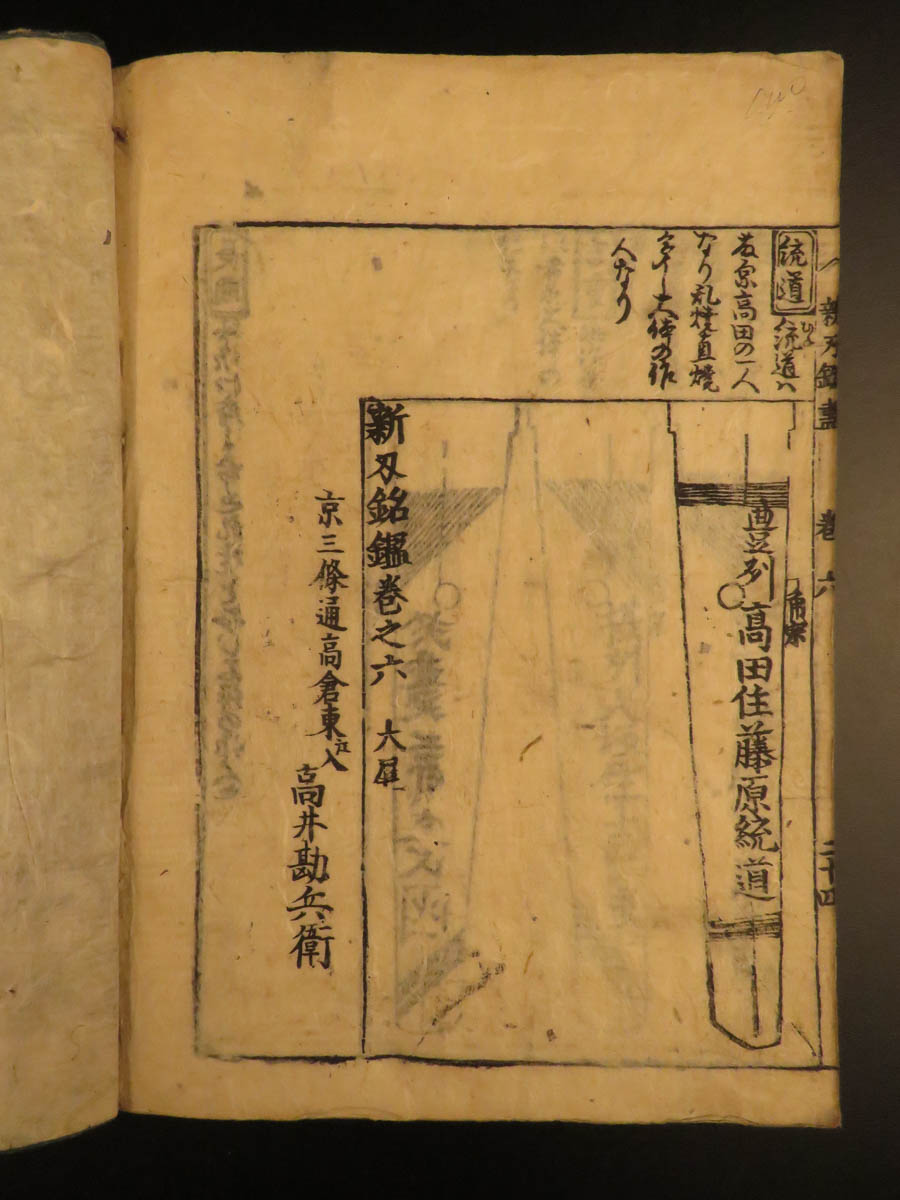 新刃銘盡 巻六 二十四
統道
統道ハ
藤原高田の一人
なり乱焼直焼
大体の作
人なり
豊州高田住藤原統道
新刃銘鑑巻之六 大尾
京三條通高倉東江入
高井勘兵衛